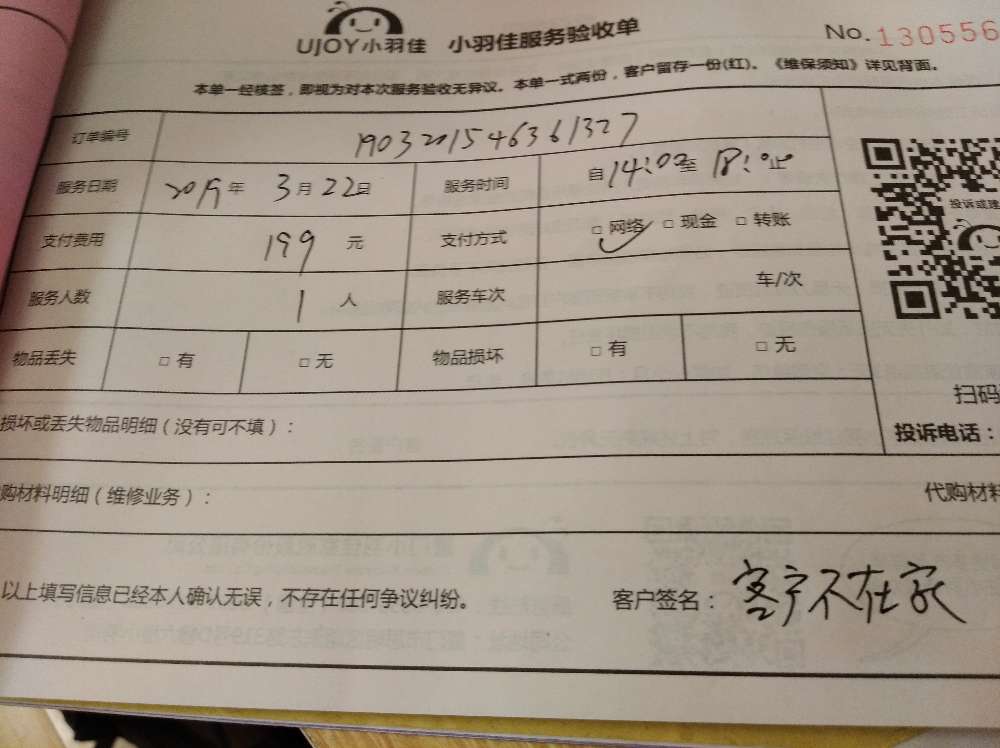 UJOY小羽佳 小羽佳服务验收单 No.130556
本单一经核签，即视为对本次服务验收无异议。本单一式两份，客户留存一份(红)。《维保须知》详见背面。
订单编号 1903201546361327
服务日期 2019年 3月22日 服务时间 自14:00至 18:00止
支付费用 199 元 支付方式 □ 网络 □ 现金 □ 转账
服务人数 1 人 服务车次 车/次
物品丢失 □ 有 □ 无 物品损坏 □ 有 □ 无
投诉或建
扫码
损坏或丢失物品明细（没有可不填）： 投诉电话：
购材料明细（维修业务）： 代购材料
以上填写信息已经本人确认无误，不存在任何争议纠纷。 客户签名：客户不在家